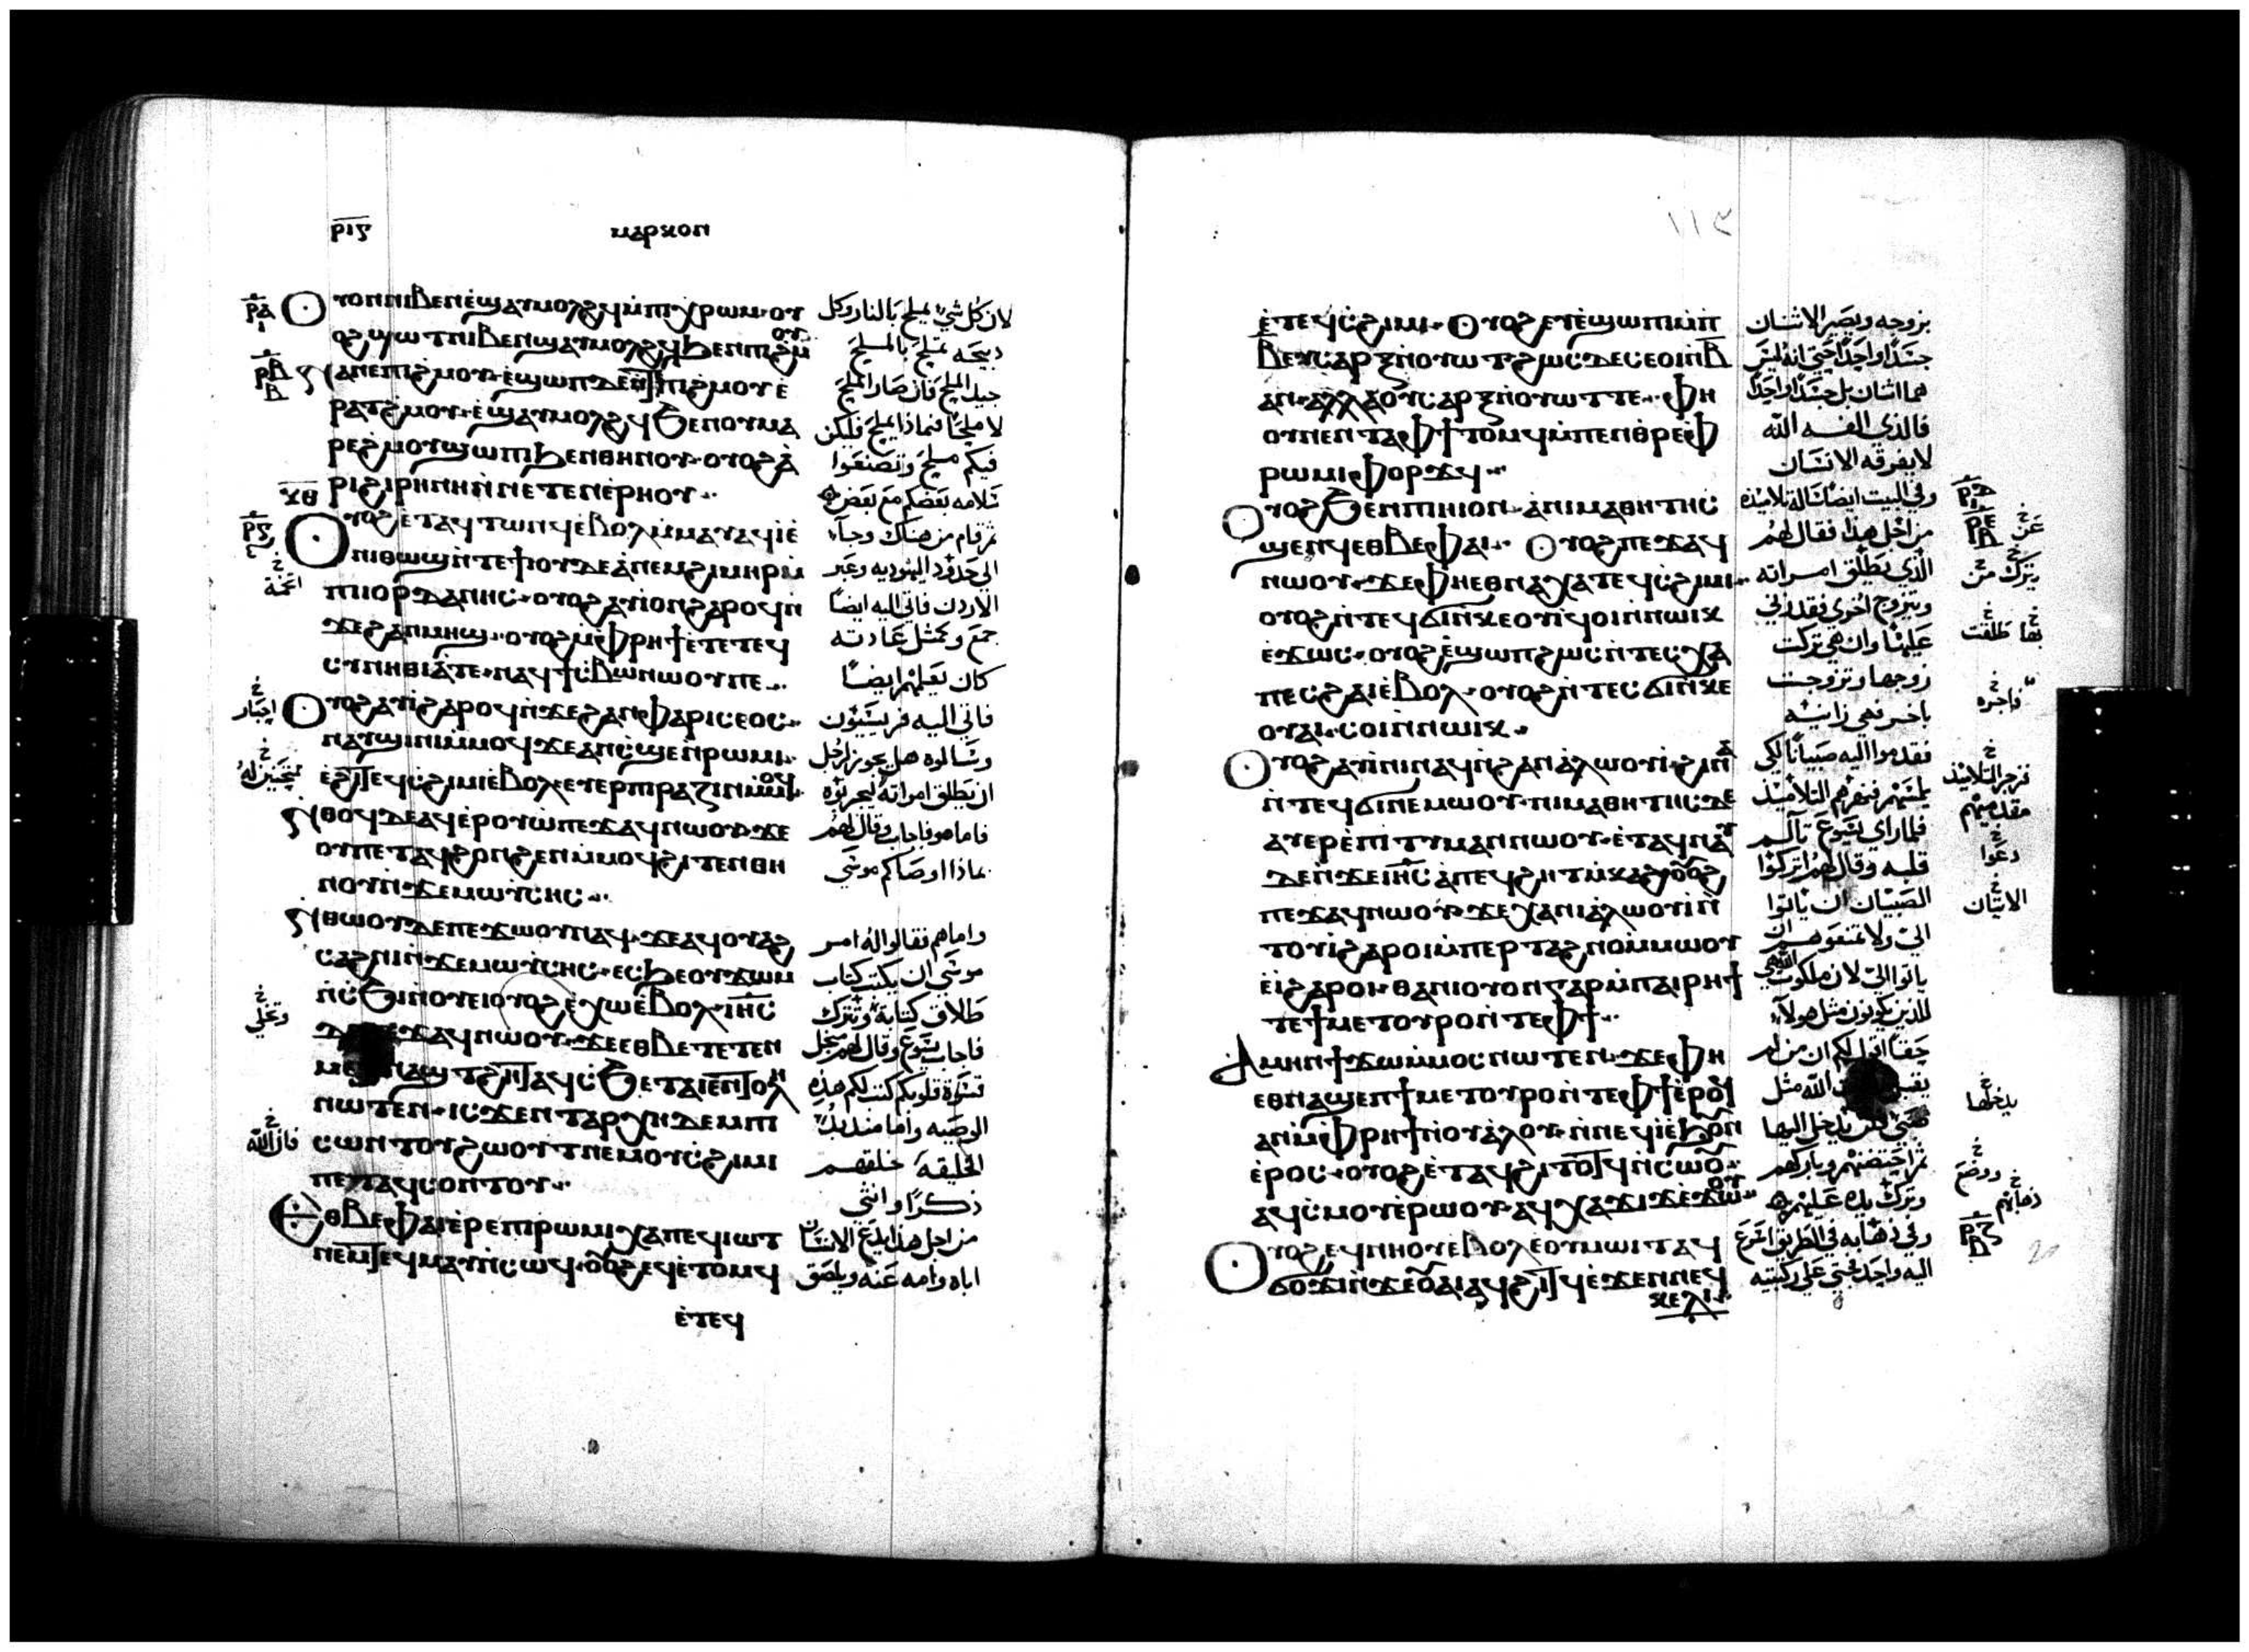 ⲣⲓⲍ
ⲙⲁⲣⲕⲟⲛ
ⲟⲩⲟⲛ ⲛⲓⲃⲉⲛ ⲉ̀ϣⲁⲩⲙⲟⲗϩϥ ⲙ̀ⲡⲓⲭ̀ⲣⲱⲙ ⲟⲩ
ⲟϩ ϣⲱⲧ ⲛⲓⲃⲉⲛ ϣⲁⲩⲙⲟⲗϩϥ ϧⲉⲛ ⲡⲓϩⲙⲟⲩ
ⲛⲁⲛⲉ ⲡⲓϩⲙⲟⲩ ⲉ̀ϣⲱⲡ ⲇⲉ ⲛ̀ⲧⲉ ⲡⲓϩⲙⲟⲩ ⲉ
ⲣⲁⲧϩⲙⲟⲩ ⲉ̀ϣⲁⲩⲙⲟⲗϩϥ ϧⲉⲛ ⲟⲩ ⲙⲁ
ⲣⲉ ϩⲙⲟⲩ ϣⲱⲡⲓ ϧⲉⲛ ⲑⲏⲛⲟⲩ ⲟⲩⲟϩ ⲁ̀
ⲣⲓϩⲓⲣⲏⲛⲏ ⲛⲉⲙ ⲛⲉⲧⲉⲛⲉ̀ⲣⲏⲟⲩ
ⲟⲩⲟϩ ⲉ̀ⲧⲁϥⲧⲱⲛϥ ⲉ̀ⲃⲟⲗ ⲙ̀ⲙⲁⲩ ⲁϥⲓ̀ ⲉ̀
ⲛⲓⲑⲱϣ ⲛ̀ⲧⲉ ϯⲓⲟⲩⲇⲉⲁ̀ ⲛⲉⲙ ϩⲓⲙⲏⲣ ⲙ̀
ⲡⲓⲓⲟⲣⲇⲁⲛⲏⲥ ⲟⲩⲟϩ ⲁⲩⲓ̀ ⲟⲛ ϩⲁⲣⲟϥ ⲛ̀
ϫⲉ ϩⲁⲛⲙⲏϣ ⲟⲩⲟϩ ⲙ̀ⲫⲣⲏϯ ⲉ̀ⲧⲉ ⲧⲉϥ
ⲥⲩⲛⲏⲑⲓⲁ̀ ⲧⲉ ⲛⲁϥϯⲥ̀ⲃⲱ ⲛⲱⲟⲩ ⲡⲉ
ⲟⲩⲟϩ ⲁⲩⲓ̀ ϩⲁⲣⲟϥ ⲛ̀ϫⲉ ϩⲁⲛⲫⲁⲣⲓⲥⲉⲟⲥ
ⲛⲁⲩϣⲓⲛⲓ ⲙ̀ⲙⲟϥ ϫⲉ ⲁⲛ ⲥ̀ϣⲉ ⲛ̀ⲣⲱⲙⲓ
ⲉ̀ϩⲓ ⲧⲉϥⲥ̀ϩⲓⲙⲓ ⲉ̀ⲃⲟⲗ ⲉⲩⲉⲣⲡⲓⲣⲁⲍⲓⲛ ⲙ̀ⲙⲟϥ
ⲛ̀ⲑⲟϥ ⲇⲉ ⲁϥⲉ̀ⲣⲟⲩⲱ̀ ⲡⲉϫⲁϥ ⲛⲱⲟⲩ ϫⲉ
ⲟⲩ ⲡⲉⲧⲁϥϩⲟⲛϩⲉⲛ ⲙ̀ⲙⲟϥ ϩⲓⲧⲉⲛ ⲑⲏ
ⲛⲟⲩ ⲛ̀ϫⲉ ⲙⲱⲩ̀ⲥⲏⲥ
ⲛ̀ⲑⲱⲟⲩ ⲇⲉ ⲡⲉϫⲱⲟⲩ ⲛⲁϥ ϫⲉ ⲁϥⲟⲩⲁϩ
ⲥⲁϩⲛⲓ ⲛ̀ϫⲉ ⲙⲱⲩ̀ⲥⲏⲥ ⲉⲥϧⲉ ⲟⲩϫⲱⲙ
ⲛ̀ⲥ̀ϧⲓⲛⲟⲩⲉⲓ ⲟⲩⲟϩ ⲉ̀ⲭⲱ ⲉ̀ⲃⲟⲗ ⲓⲏⲥ
ⲛⲱⲟⲩ ϫⲉ ⲉⲑⲃⲉ ⲧⲉⲧⲉⲛ
ⲛⲱⲧⲉⲛ ⲓⲥϫⲉⲛ ⲧⲁⲣⲭⲏ ⲇⲉ ⲙ̀ⲡⲓ
ⲥⲱⲛⲧ ⲟⲩϩⲱⲟⲩⲧ ⲛⲉⲙ ⲟⲩⲥ̀ϩⲓⲙⲓ
ⲡⲉⲧⲁϥⲥⲟⲛⲧⲟⲩ
ⲉⲑⲃⲉ ⲫⲁⲓ ⲉ̀ⲣⲉ ⲡⲓⲣⲱⲙⲓ ⲭⲁ ⲡⲉϥⲓⲱⲧ
ⲛⲉⲙ ⲧⲉϥⲙⲁⲩ ⲛ̀ⲥⲱϥ ⲟⲩⲟϩ ⲉϥⲉ̀ⲧⲟⲙϥ
ⲉ̀ⲧⲉϥ
لان كل شي يملح بالنار وكل
دبيحه تملح بالمليح
جيد الملح فان صار الملح
لا ملحًا فبماذا يملح فليكن
فيكم ملح وتصنعوا
سلامه بعضكم مع بعض
ثم قام من هناك وجآء
الي حدود اليهوديه وعبر
الاردن فاتي اليه ايضًا
جمع وكمثل عادته
كان يعلمهم ايضًا
فاتي اليه فريسيون
وسالوه هل يجوز لرجل
ان يطلق امراته ليجربوه
فاما هو فاجاب وقال لهم
بماذا اوصاكم موسي
واما هم فقالوا له امر
موسي ان يكتب كتاب
طلاق كتابة وتترك
فاجاب يسوع وقال لهم من اجل
قسوة قلوبكم كتب لكم هذه
الوصيه واما منذ بدؤ
الخليقة خلقهم
ذكرًا وانثي
من اجل هذا يدع الانسان
اباه وامه عنه ويلصق
١١٣
ⲉ̀ⲧⲉϥⲥ̀ϩⲓⲙⲓ ⲟⲩⲟϩ ⲉⲩⲉ̀ϣⲱⲡⲓ ⲙ̀ⲡ
ⲃ ⲉⲩⲥⲁⲣⲝ ⲛ̀ⲟⲩⲱⲧ ϩⲱⲥ ⲇⲉ ⲥⲉⲟⲓ ⲛ̀ⲃ
ⲁⲛ ⲁⲗⲗⲁ ⲟⲩⲥⲁⲣⲝ ⲛ̀ⲟⲩⲱⲧ ⲧⲉ ⲫⲏ
ⲟⲩⲛ ⲉⲧⲁ ⲫϯ ⲧⲟⲙϥ ⲙ̀ⲡⲉⲛⲑⲣⲉ ⲫ
ⲣⲱⲙⲓ ⲫⲟⲣϫϥ
ⲟⲩⲟϩ ϧⲉⲛ ⲡⲓⲏⲓ ⲟⲛ ⲁ̀ ⲛⲓⲙⲁⲑⲏⲧⲏⲥ
ϣⲉⲛϥ ⲉⲑⲃⲉ ⲫⲁⲓ ⲟⲩⲟϩ ⲡⲉϫⲁϥ
ⲛⲱⲟⲩ ϫⲉ ⲫⲏ ⲉⲑⲛⲁⲭⲁ ⲧⲉϥⲥ̀ϩⲓⲙⲓ
ⲟⲩⲟϩ ⲛ̀ⲧⲉϥϭⲓ ⲛ̀ⲕⲉⲟⲩⲓ̀ ϥⲟⲓ ⲛ̀ⲛⲱⲓⲕ
ⲉ̀ϫⲱⲥ ⲟⲩⲟϩ ⲉ̀ϣⲱⲡ ϩⲱⲥ ⲛ̀ⲧⲉⲥⲭⲁ
ⲡⲉⲥϩⲁⲓ ⲉ̀ⲃⲟⲗ ⲟⲩⲟϩ ⲛ̀ⲧⲉⲥϭⲓ ⲛ̀ⲕⲉ
ⲟⲩⲁⲓ ⲥⲟⲓ ⲛ̀ⲛⲱⲓⲕ
ⲟⲩⲟϩ ⲁⲩⲓ̀ⲛⲓ ⲛⲁϥ ⲛ̀ϩⲁⲛⲁ̀ⲗⲱⲟⲩⲓ̀ ϩⲓⲛⲁ
ⲛ̀ⲧⲉϥϭⲓ ⲛⲉⲙⲱⲟⲩ ⲛⲓⲙⲁⲑⲏⲧⲏⲥ ⲇⲉ
ⲁⲩⲉⲣⲉ̀ⲡⲓⲧⲩⲙⲁⲛ ⲛⲱⲟⲩ ⲉ̀ⲧⲁϥⲛⲁⲩ
ⲇⲉ ⲛ̀ϫⲉ ⲓⲏⲥ ⲁ̀ ⲡⲉϥϩⲏⲧ ⲙ̀ⲕⲁϩ ⲟⲩⲟϩ
ⲡⲉϫⲁϥ ⲛⲱⲟⲩ ϫⲉ ⲭⲁ ⲛⲓⲁ̀ⲗⲱⲟⲩⲓ̀ ⲛ̀
ⲧⲟⲩⲓ̀ ϩⲁⲣⲟⲓ ⲙ̀ⲡⲉⲣⲧⲁϩⲛⲟ ⲙ̀ⲙⲱⲟⲩ
ⲉ̀ⲓ̀ ϩⲁⲣⲟⲓ ⲑⲁ ⲛⲓⲟⲩⲟⲛ ⲅⲁⲣ ⲙ̀ⲡⲁⲓⲣⲏϯ
ⲧⲉ ϯⲙⲉⲧⲟⲩⲣⲟ ⲛ̀ⲧⲉ ⲫϯ
ⲁⲙⲏⲛ ϯϫⲱ ⲙ̀ⲙⲟⲥ ⲛⲱⲧⲉⲛ ϫⲉ ⲫⲏ
ⲉⲑⲛⲁϣⲉⲡ ϯⲙⲉⲧⲟⲩⲣⲟ ⲛ̀ⲧⲉ ⲫϯ ⲉ̀ⲣⲟϥ
ⲁⲛ ⲙ̀ⲫⲣⲏϯ ⲛ̀ⲟⲩⲁ̀ⲗⲟⲩ ⲛ̀ⲛⲉϥⲓ̀ ⲉ̀ϧⲟⲩⲛ
ⲉ̀ⲣⲟⲥ ⲟⲩⲟϩ ⲉ̀ⲧⲁϥϩⲓⲧⲟⲧϥ ⲛ̀ⲥⲱⲟⲩ
ⲁϥⲥ̀ⲙⲟⲩ ⲉ̀ⲣⲱⲟⲩ ⲁϥⲭⲁ ϫⲓϫ ⲉ̀ϫⲱⲟⲩ
ⲟⲩⲟϩ ⲉϥⲛⲏⲟⲩ ⲉ̀ⲃⲟⲗ ⲉⲟⲩⲙⲱⲓⲧ ⲁϥ
ϭⲟϫⲓ ⲛ̀ϫⲉ ⲟⲩⲁⲓ ⲁϥϩⲓⲧϥ ⲉ̀ϫⲉⲛ ⲛⲉϥ
ⲕⲉⲗⲓ
بزوجه ويصير الاثنان
جسدًا واحدًا حتي انه ليس
هما اثنان بل جسدًا واحدًا
فالذي الفه الله
لا يفرقه الانسان
وفي البيت ايضًا ساله تلاميذه
من اجل هذا فقال لهم
الذي يطلق امراته
ويتزوج اخري فقد زني
عليها وان هي تركت
زوجها وتزوجت
باخر فهي زانيه
فقدموا اليه صبيانًا لكي
يلمسهم فنهرهم التلاميذ
فلما راي يسوع تالم
قلبه وقال لهم اتركوا
الصبيان ان ياتوا
الي ولا تمنعوهم ان
ياتوا الي لان ملكوت الله هي
للذين يكونون مثل هولآء
حقًا اقول لكم ان من لم
الله مثل
يدخل اليها
ثم احتضنهم وباركهم
وترك يده عليهم
وفي ذهابه في الطريق اسرع
اليه واحد فجثي علي ركبتيه